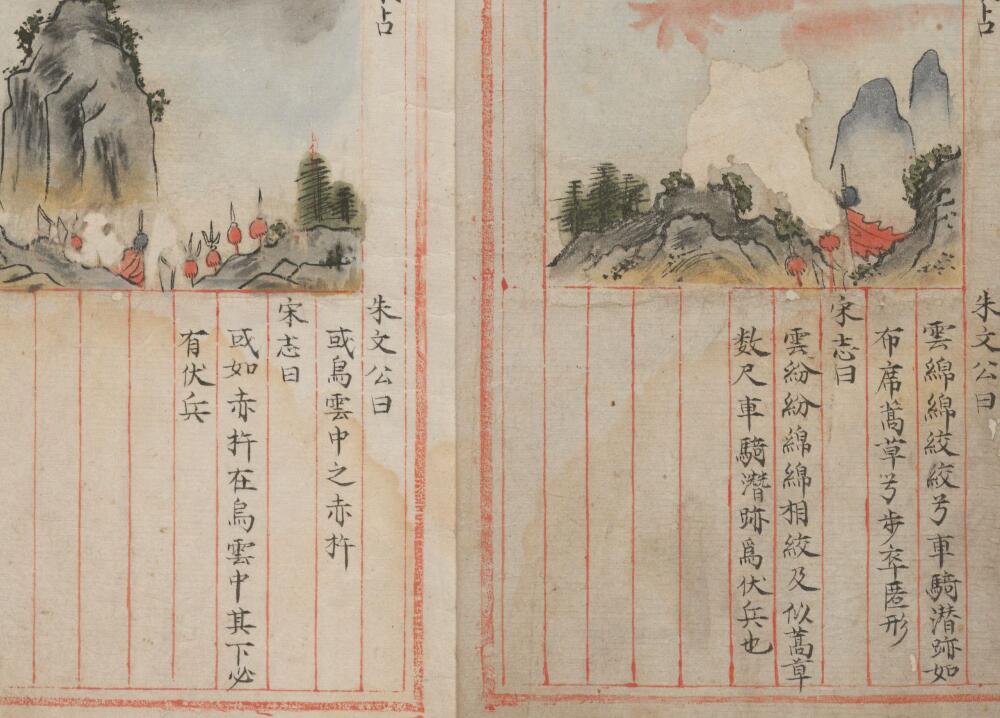 占
朱文公曰
雲綿綿絞絞兮車騎潜跡如
布席蒿草兮步卒匿形
宋志曰
雲紛紛綿綿相絞及似蒿草
数尺車騎潛跡爲伏兵也
占
朱文公曰
或烏雲中之赤杵
宋志曰
或如赤杵在烏雲中其下必
有伏兵